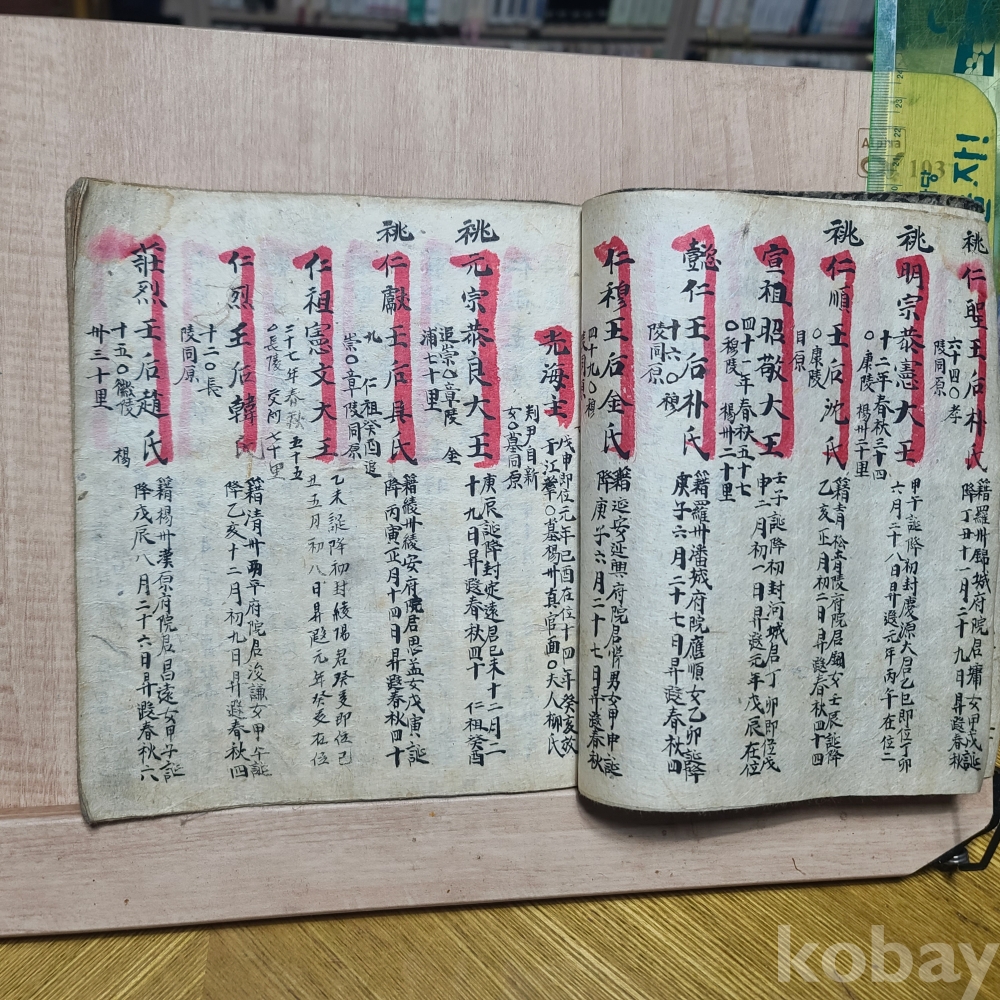 祧 仁聖王后朴氏
籍羅州錦城府院君墉女甲戌誕
降丁丑十一月二十九日昇遐春秋
六十四○孝
陵同原
祧 明宗恭憲大王
甲午誕降初封慶源大君乙巳即位丁卯
六月二十八日昇遐元年丙午在位二
十二年春秋三十四
○康陵 楊州二十里
祧 仁順王后沈氏
籍青松青陵府院君鋼女壬辰誕降
乙亥正月初二日昇遐春秋四十四
○康陵
同原
宣祖昭敬大王
壬子誕降初封河城君丁卯即位戊
申二月初一日昇遐元年戊辰在位
四十一年春秋五十七
○穆陵 楊州二十里
懿仁王后朴氏
籍羅州潘城府院君應順女乙卯誕降
庚子六月二十七日昇遐春秋四
十六○穆
陵同原
仁穆王后金氏
籍延安延興府院君悌男女甲申誕
降 六月二十八日昇遐春秋
四十九○穆
光海主
戊申即位元年己酉在位十四年癸亥放
于江華○墓楊州真官面○夫人柳氏
判尹自新
女○墓同原
祧 元宗恭良大王
庚辰誕降封定遠君己未十二月二
十九日昇遐春秋四十 仁祖癸酉
追崇○章陵 金
浦七十里
祧 仁獻王后具氏
籍綾州綾安府院君思孟女戊寅誕
降丙寅正月十四日昇遐春秋四十
九 仁祖癸酉追
崇○章陵同原
仁祖憲文大王
乙未誕降初封綾陽君癸亥即位己
丑五月初八日昇遐元年癸亥在位
二十七年春秋五十五
○長陵 交河七十里
仁烈王后韓氏
籍清州西平府院君浚謙女甲午誕
降乙亥十二月初九日昇遐春秋四
十二○長
陵同原
莊烈王后趙氏
籍楊州漢原府院君昌遠女甲子誕
降戊辰八月二十六日昇遐春秋六
十五○徽陵 楊
州三十里
kobay